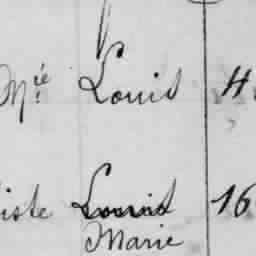 Mié Louis 4
iste Louis 16
Marie